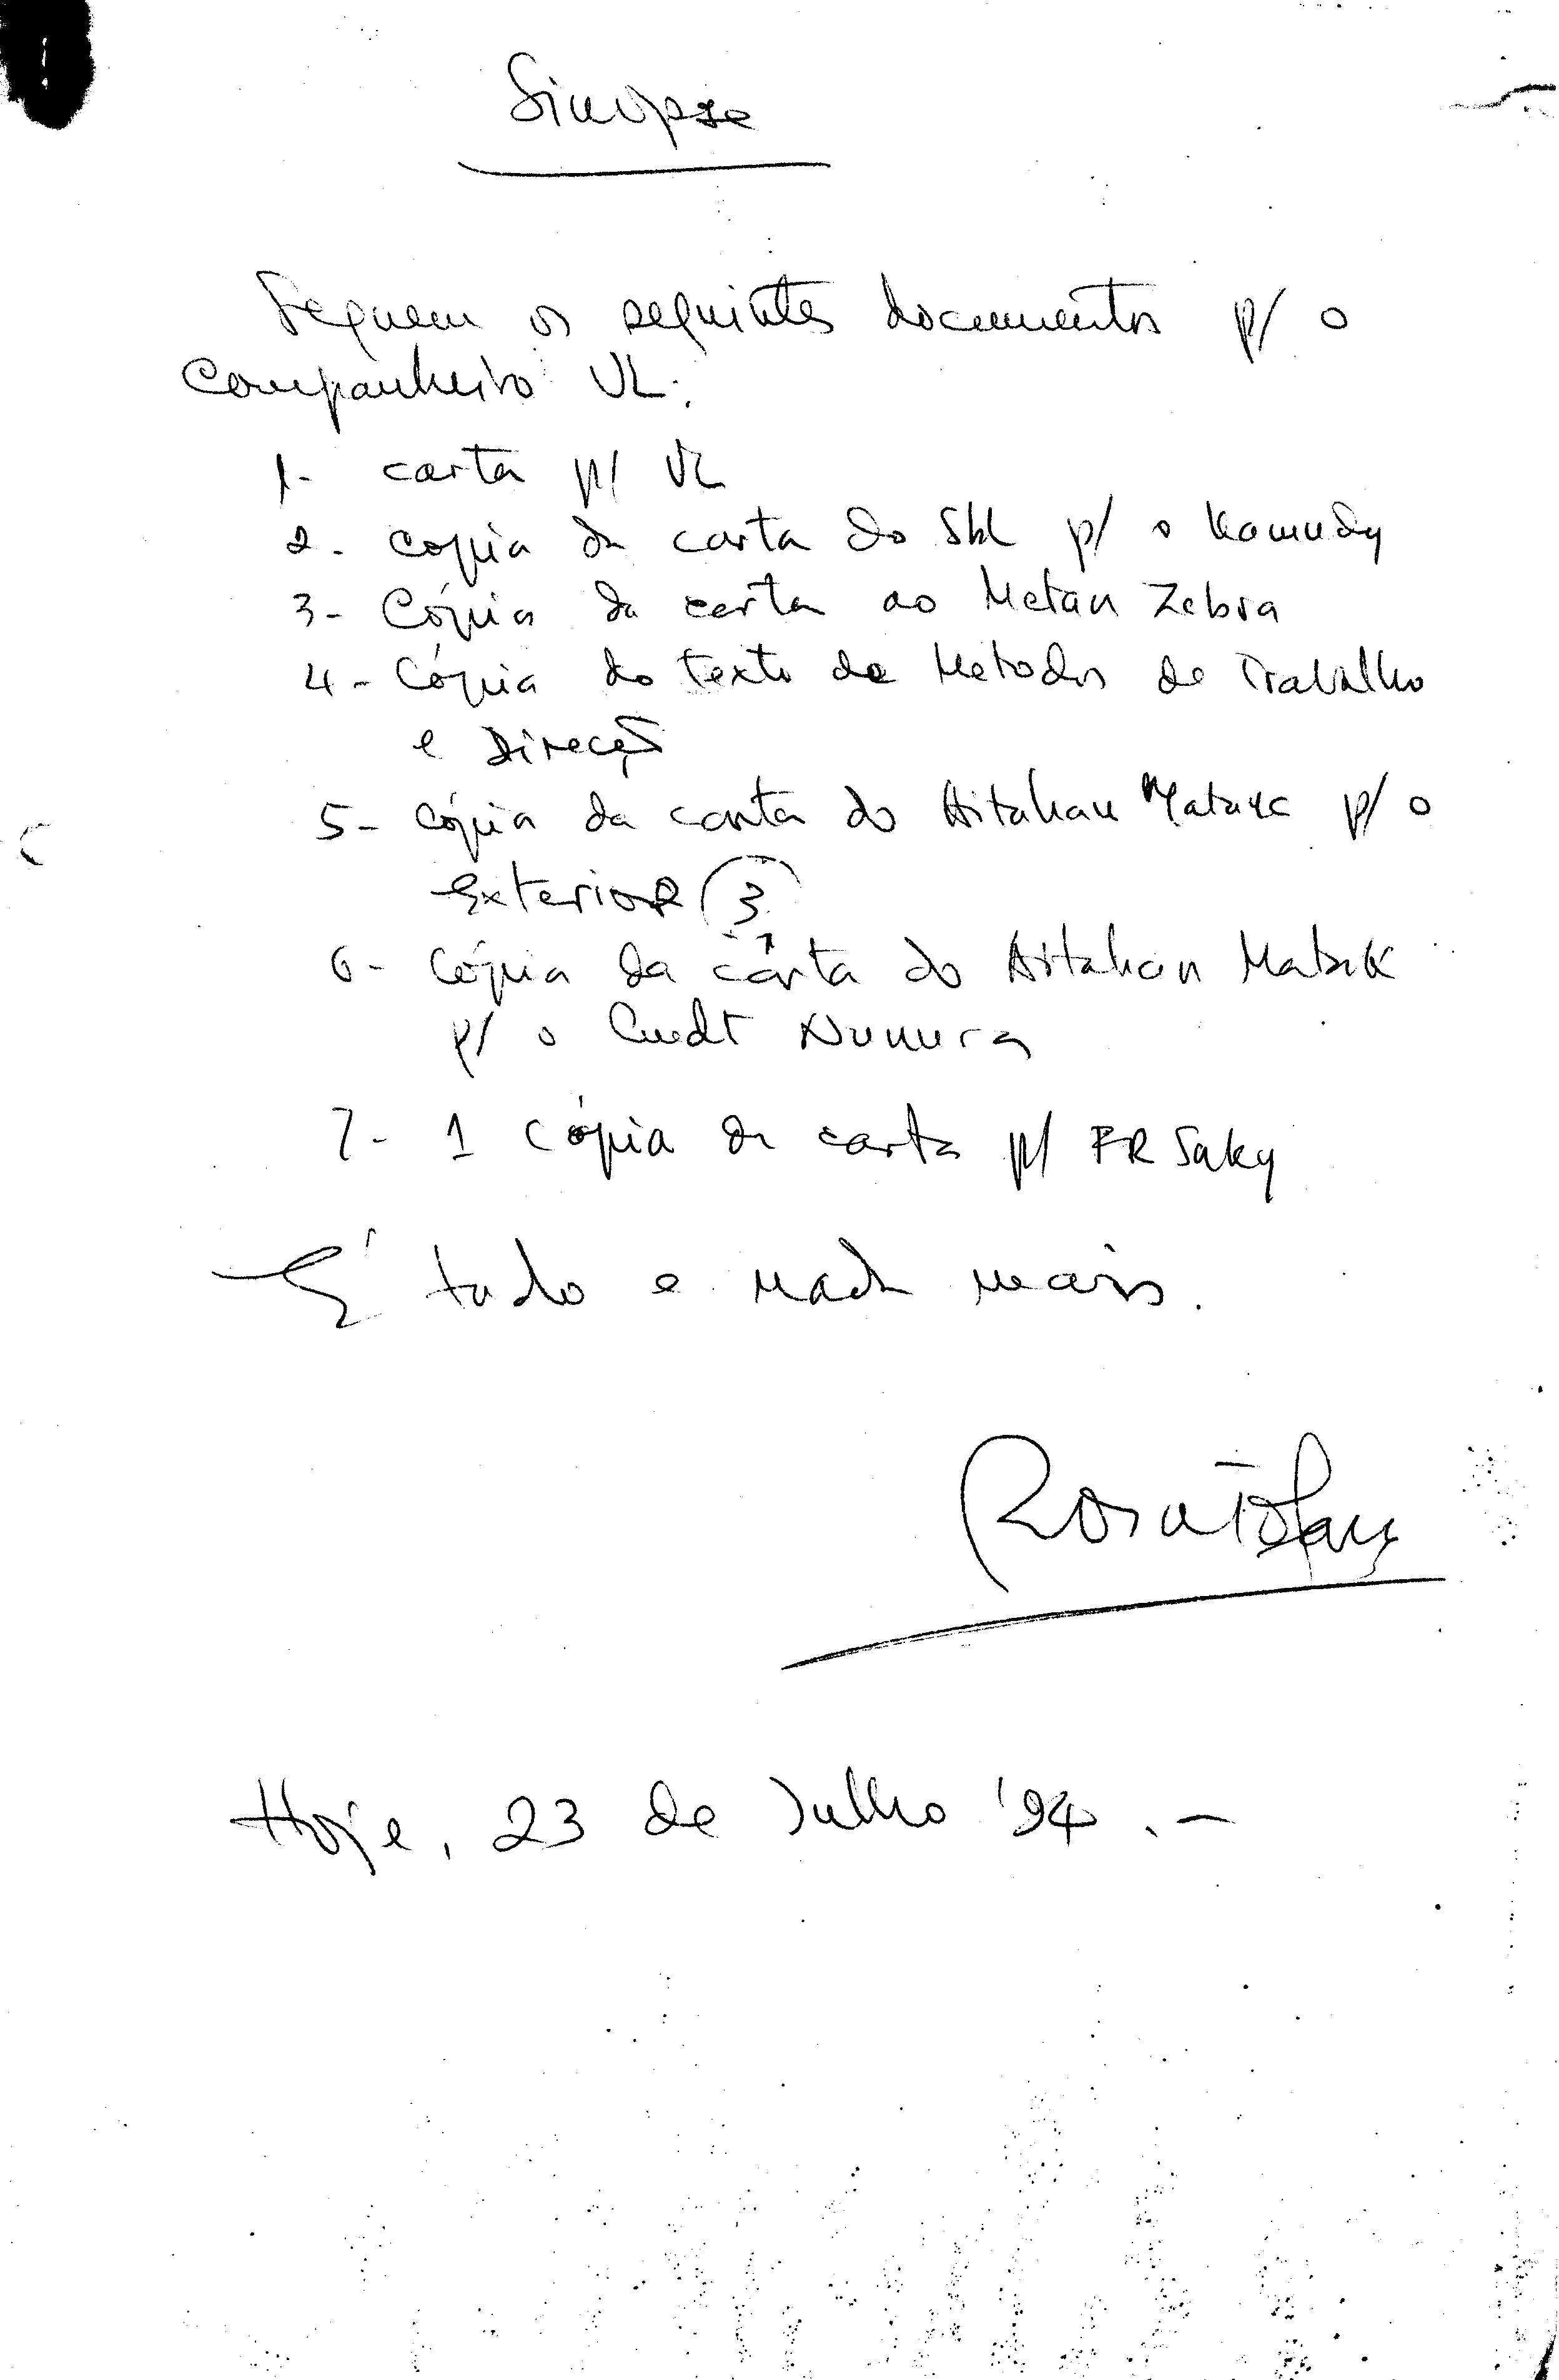 Sinopse
Seguem os seguintes documentos p/ o
Companheiro VL:
1- carta p/ VL
2- copia da carta do SKL p/ o Kamudy
3- Cópia da carta ao Metan Zebra
4- Cópia do texto de Metodos de Trabalho
e Direcção
5- Cópia da carta do Aitahan Matak p/ o
Exterior (3)
6- Cópia da carta do Aitahan Matak
p/ o Cmdt Nunura
7- 1 Cópia da carta p/ FR Saky
É tudo e nada mais.
Hoje, 23 de Julho '94.-